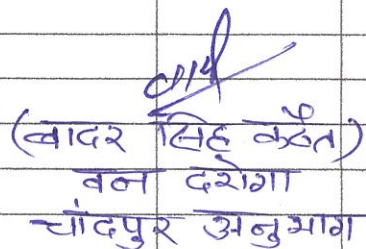 (बादर सिंह कठैत)
वन दरोगा
चांदपुर अनुभाग